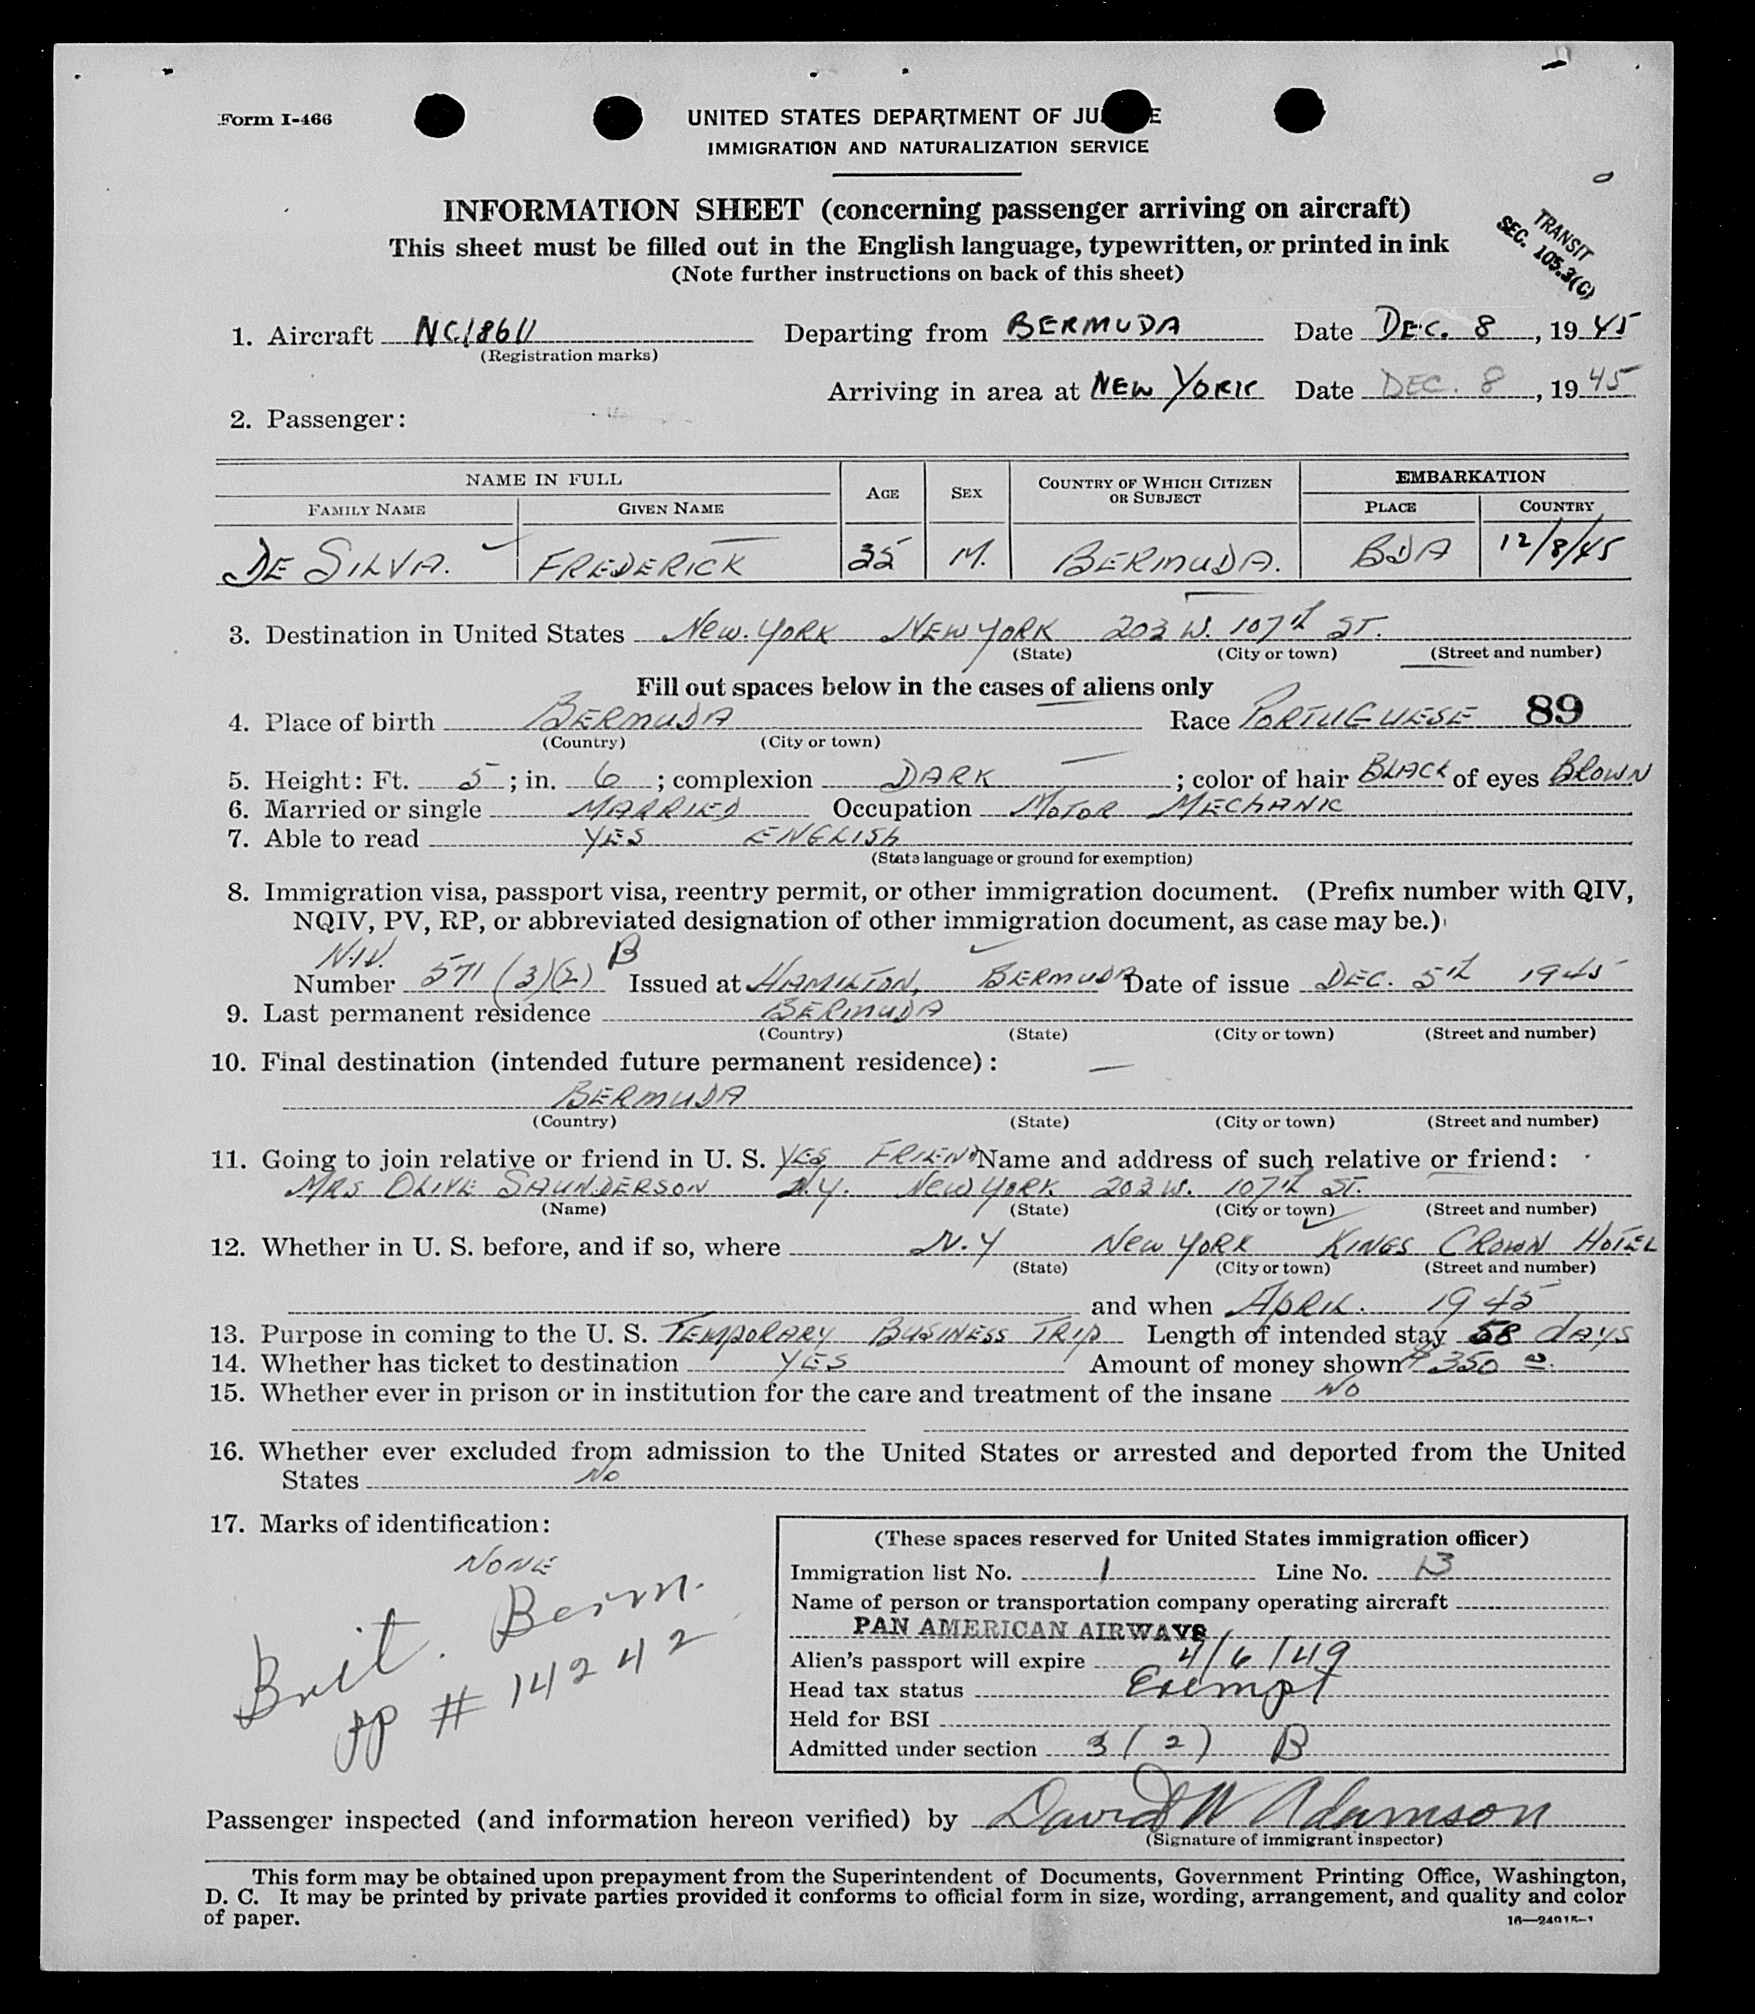 Form I-466
UNITED STATES DEPARTMENT OF JU E
IMMIGRATION AND NATURALIZATION SERVICE
INFORMATION SHEET (concerning passenger arriving on aircraft)
This sheet must be filled out in the English language, typewritten, or printed in ink
(Note further instructions on back of this sheet)
TRANSIT
SEC. 105.3(C)
1. Aircraft NC18611 Departing from BERMUDA Date DEC. 8, 1945
(Registration marks)
Arriving in area at NEW YORK Date DEC. 8, 1945
2. Passenger:
NAME IN FULL AGE SEX COUNTRY OF WHICH CITIZEN OR SUBJECT EMBARKATION
FAMILY NAME GIVEN NAME PLACE COUNTRY
DE SILVA. FREDERICK 35 M. BERMUDA. BDA 12/8/45
3. Destination in United States New. YORK NEW YORK 203 W. 107th ST.
(State) (City or town) (Street and number)
Fill out spaces below in the cases of aliens only
4. Place of birth BERMUDA Race PORTUGUESE 89
(Country) (City or town)
5. Height: Ft. 5; in. 6; complexion DARK; color of hair BLACK of eyes BROWN
6. Married or single MARRIED Occupation MOTOR MECHANIC
7. Able to read YES ENGLISH
(State language or ground for exemption)
8. Immigration visa, passport visa, reentry permit, or other immigration document. (Prefix number with QIV,
NQIV, PV, RP, or abbreviated designation of other immigration document, as case may be.)
N.I.V. B
Number 571 (3)(2) Issued at HAMILTON, BERMUDA Date of issue DEC. 5th 1945
9. Last permanent residence BERMUDA
(Country) (State) (City or town) (Street and number)
10. Final destination (intended future permanent residence):
BERMUDA
(Country) (State) (City or town) (Street and number)
11. Going to join relative or friend in U. S. YES FRIEND Name and address of such relative or friend:
MRS OLIVE SAUNDERSON N.Y. New YORK 203 W. 107th ST.
(Name) (State) (City or town) (Street and number)
12. Whether in U. S. before, and if so, where N.Y New YORK KINGS CROWN HOTEL
(State) (City or town) (Street and number)
and when APRIL. 1945
13. Purpose in coming to the U. S. TEMPORARY BUSINESS TRIP Length of intended stay 58 DAYS
14. Whether has ticket to destination YES Amount of money shown $350
15. Whether ever in prison or in institution for the care and treatment of the insane No
16. Whether ever excluded from admission to the United States or arrested and deported from the United
States No
17. Marks of identification:
NONE
Brit. Berm.
PP # 14242
(These spaces reserved for United States immigration officer)
Immigration list No. 1 Line No. 13
Name of person or transportation company operating aircraft
PAN AMERICAN AIRWAYS
Alien's passport will expire 4/6/49
Head tax status Exempt
Held for BSI
Admitted under section 3 (2) B
Passenger inspected (and information hereon verified) by David W Adamson
(Signature of immigrant inspector)
This form may be obtained upon prepayment from the Superintendent of Documents, Government Printing Office, Washington,
D. C. It may be printed by private parties provided it conforms to official form in size, wording, arrangement, and quality and color
of paper.